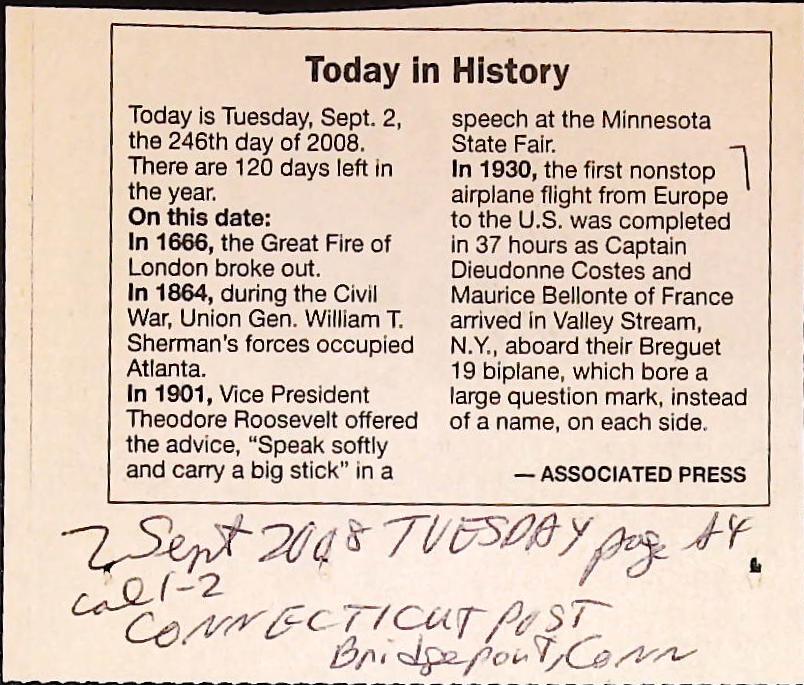 Today in History
Today is Tuesday, Sept. 2,
the 246th day of 2008.
There are 120 days left in
the year.
On this date:
In 1666, the Great Fire of
London broke out.
In 1864, during the Civil
War, Union Gen. William T.
Sherman's forces occupied
Atlanta.
In 1901, Vice President
Theodore Roosevelt offered
the advice, “Speak softly
and carry a big stick” in a
speech at the Minnesota
State Fair.
In 1930, the first nonstop
airplane flight from Europe
to the U.S. was completed
in 37 hours as Captain
Dieudonne Costes and
Maurice Bellonte of France
arrived in Valley Stream,
N.Y., aboard their Breguet
19 biplane, which bore a
large question mark, instead
of a name, on each side.
— ASSOCIATED PRESS
2 Sept 2008 TUESDAY page A4
col 1-2
CONNECTICUT POST
Bridgeport, Conn